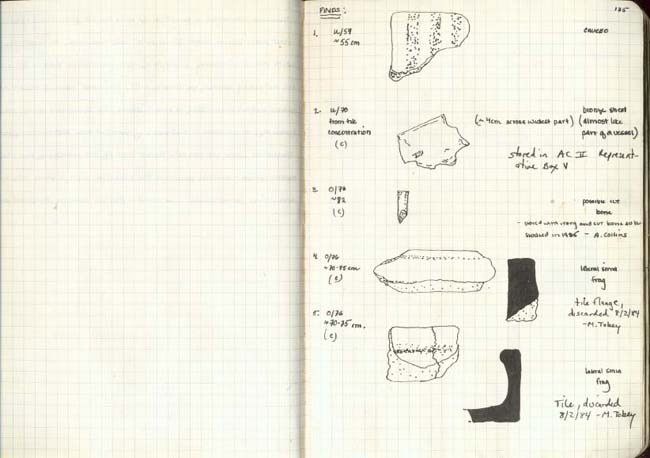 FINDS:
135
1. U/59
~55 cm
2. U/70
from tile
concentration
(C)
(~4cm across widest part)
bronze sheet
(almost like
part of a vessel)
stored in AC II Represent-
ative Box V
3. O/76
~82
(C)
possible cut
bone
- A. Collins
4. O/76
~70-75 cm
(C)
lateral sima
frag
tile flange,
discarded 8/2/84
-M. Tobey
5. O/76
~70-75 cm.
(C)
lateral sima
frag
Tile, discarded
8/2/84 -M. Tobey